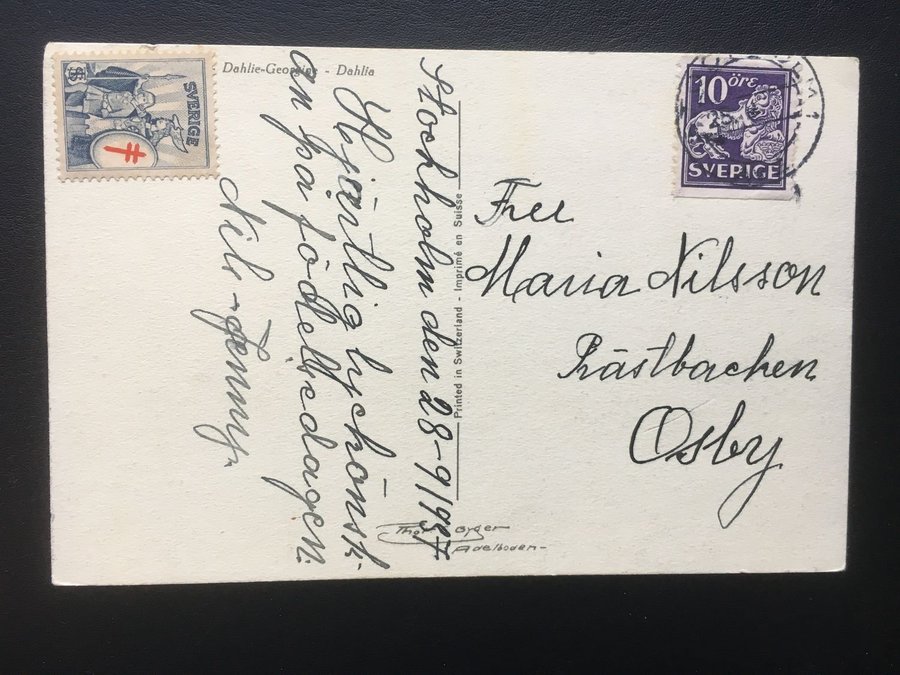 Dahlie-Georgine - Dahlia
SVERIGE
10 öre
SVERIGE
Stockholm den 28-9/1937
Hjärtlig lyckönsk-
an på födelsedagen.
Nils-Jenny.
Printed in Switzerland - Imprimé en Suisse
Fru
Maria Nilsson
Råstbacken
Osby
Gyger
Adelboden-